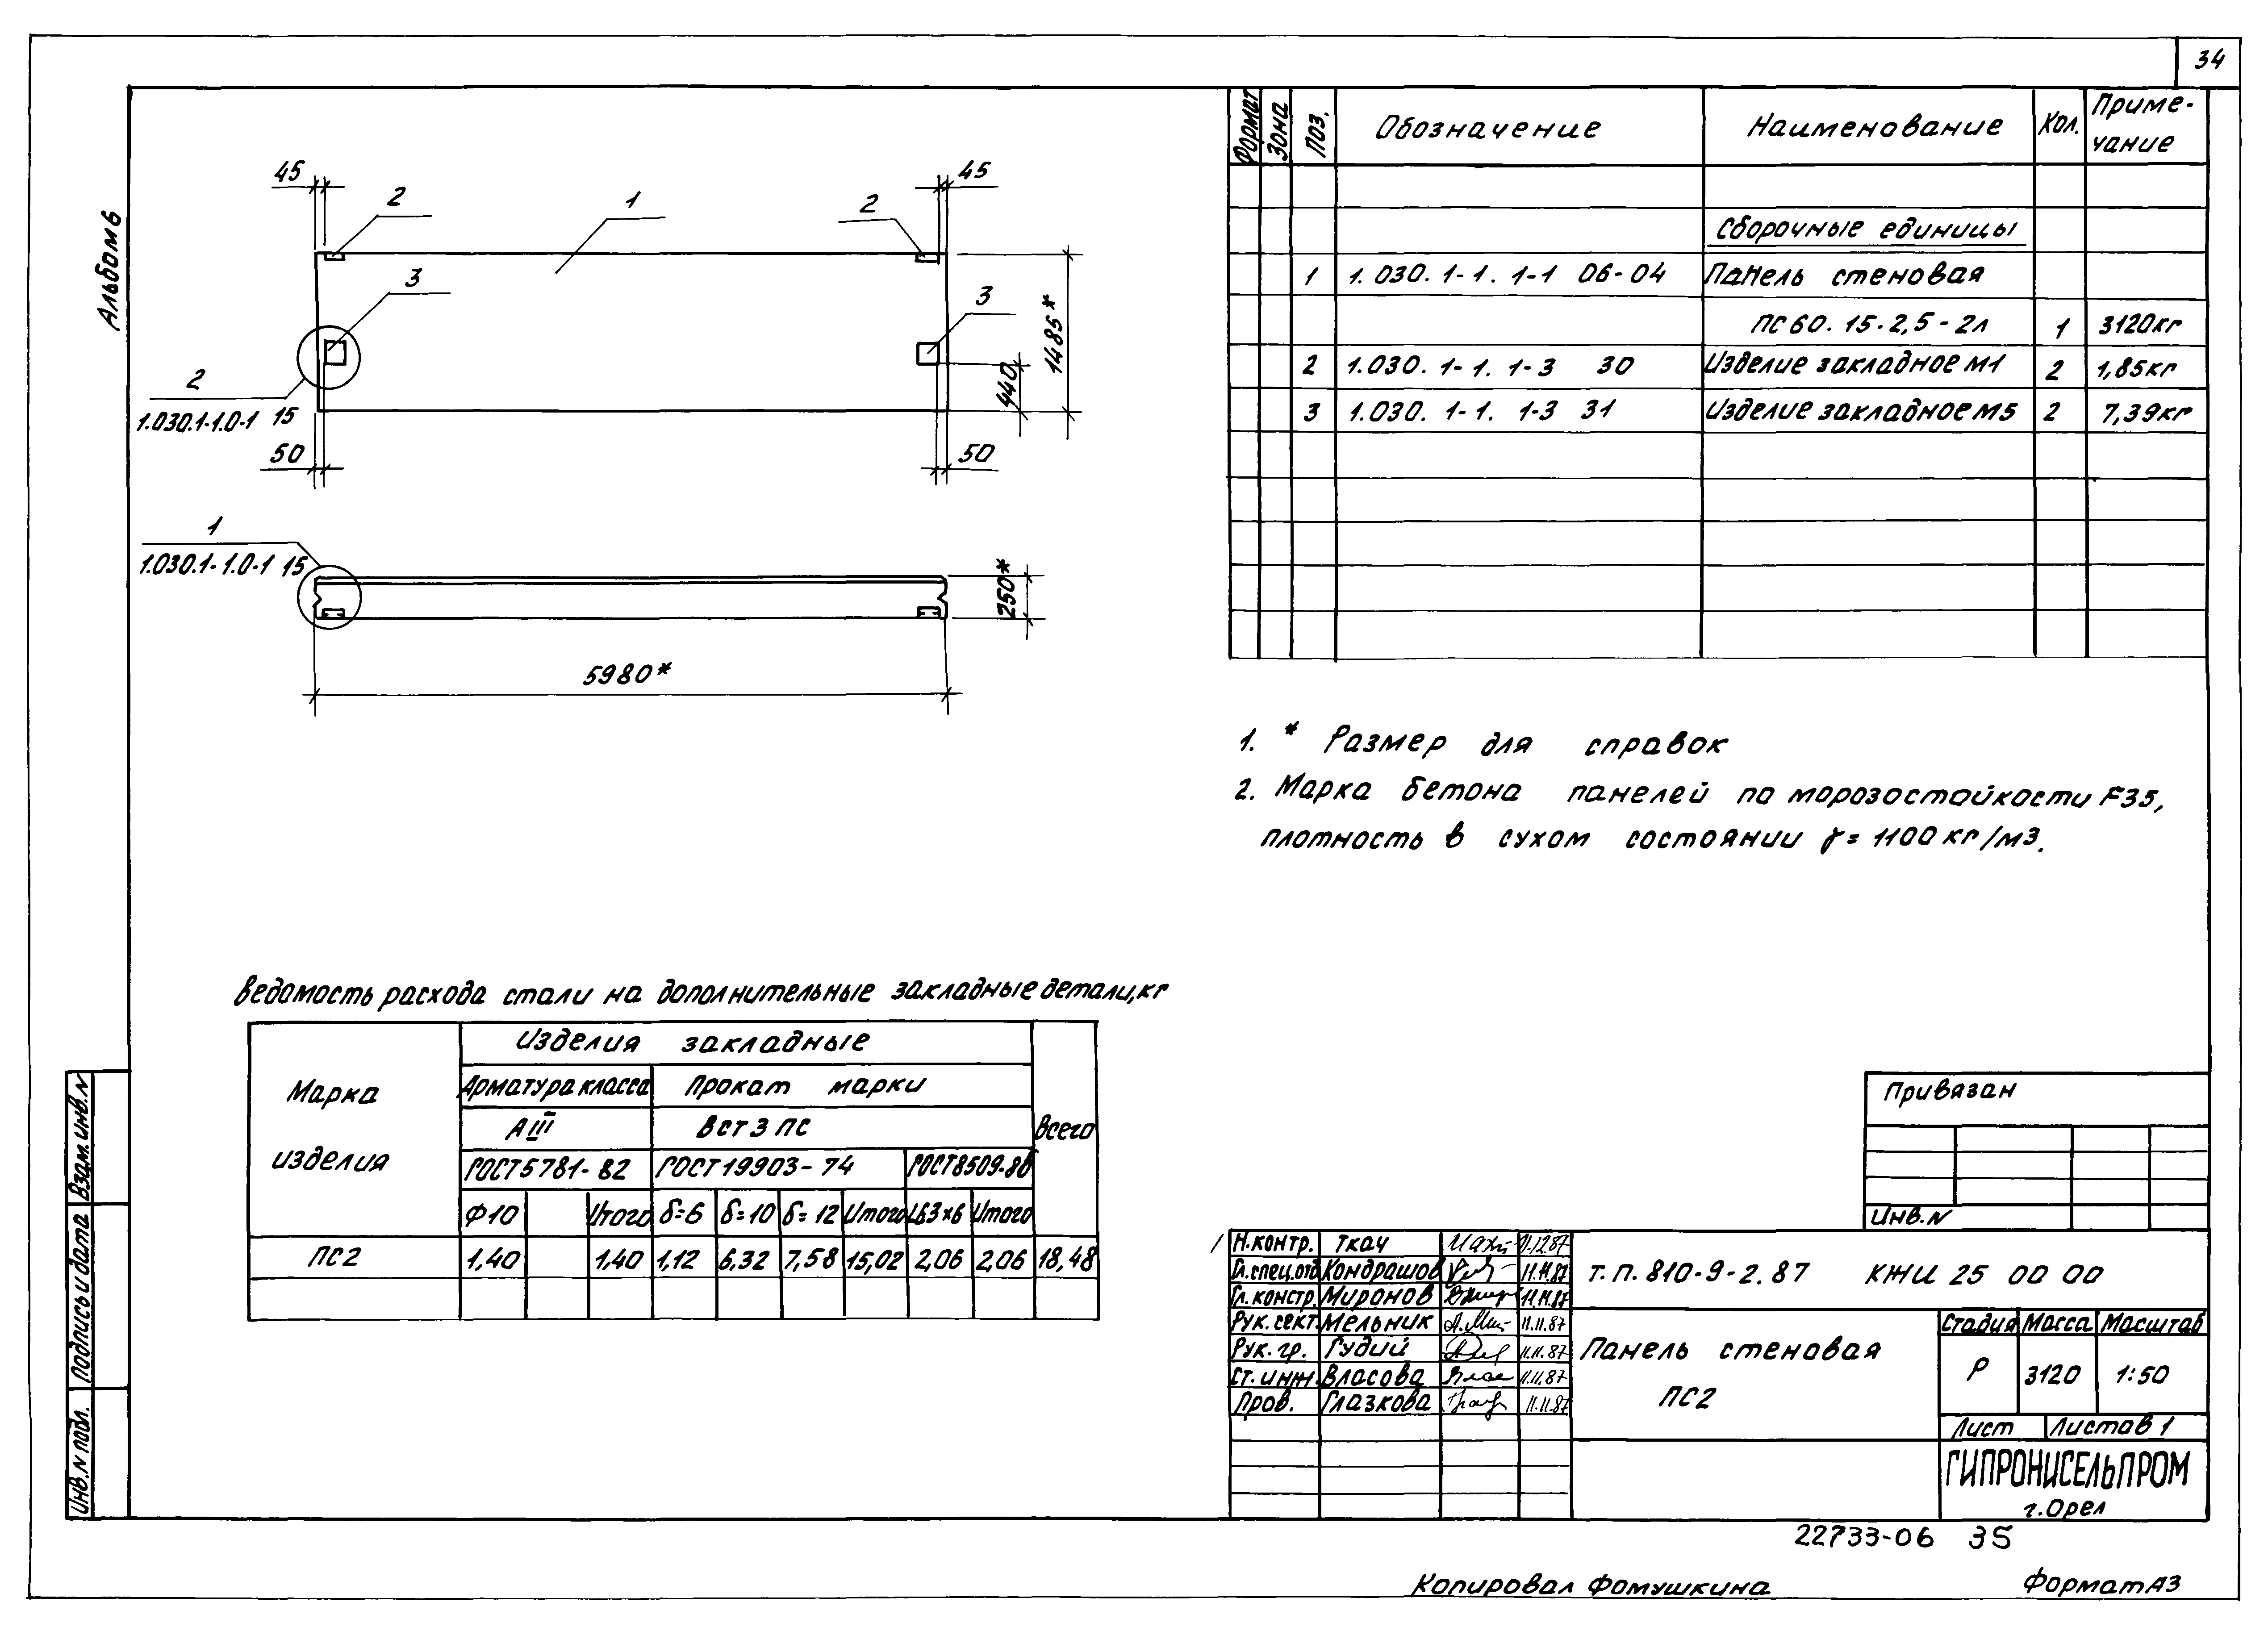 34
Альбом 6
45
45
2
1
2
3
3
1485*
440
2
1.030.1-1.0-1 15
50
50
1
1.030.1-1.0-1 15
250*
5980*
Формат Зона Поз. Обозначение Наименование Кол. Приме-
чание
Сборочные единицы
1 1.030.1-1.1-1 06-04 Панель стеновая
ПС60.15.2,5-2л 1 3120кг
2 1.030.1-1.1-3 30 Изделие закладное М1 2 1,85кг
3 1.030.1-1.1-3 31 Изделие закладное М5 2 7,39кг
1. * Размер для справок
2. Марка бетона панелей по морозостойкости F35,
плотность в сухом состоянии γ = 1100 кг/м3.
Ведомость расхода стали на дополнительные закладные детали, кг
Марка изделия
Изделия закладные
Всего
Арматура класса Прокат марки
АIII ВСт3пс
ГОСТ5781-82 ГОСТ19903-74 ГОСТ8509-86
Ф10 Итого δ=6 δ=10 δ=12 Итого L63×6 Итого
ПС2 1,40 1,40 1,12 6,32 7,58 15,02 2,06 2,06 18,48
Привязан
Инв.N
Н.контр. Ткач 11.12.87
Гл.спец.отд Кондрашов 11.11.87
Гл.констр. Миронов 11.11.87
Рук.сект. Мельник 11.11.87
Рук.гр. Гудий 11.11.87
Ст.инж. Власова 11.11.87
Пров. Глазкова 11.11.87
Т.П. 810-9-2.87 КЖИ 25 00 00
Панель стеновая
ПС2
Стадия Масса Масштаб
Р 3120 1:50
Лист Листов 1
ГИПРОНИСЕЛЬПРОМ
г.Орел
Взам.инв.N
Подпись и дата
Инв.N подл.
22733-06 35
Копировал Фомушкина Формат А3